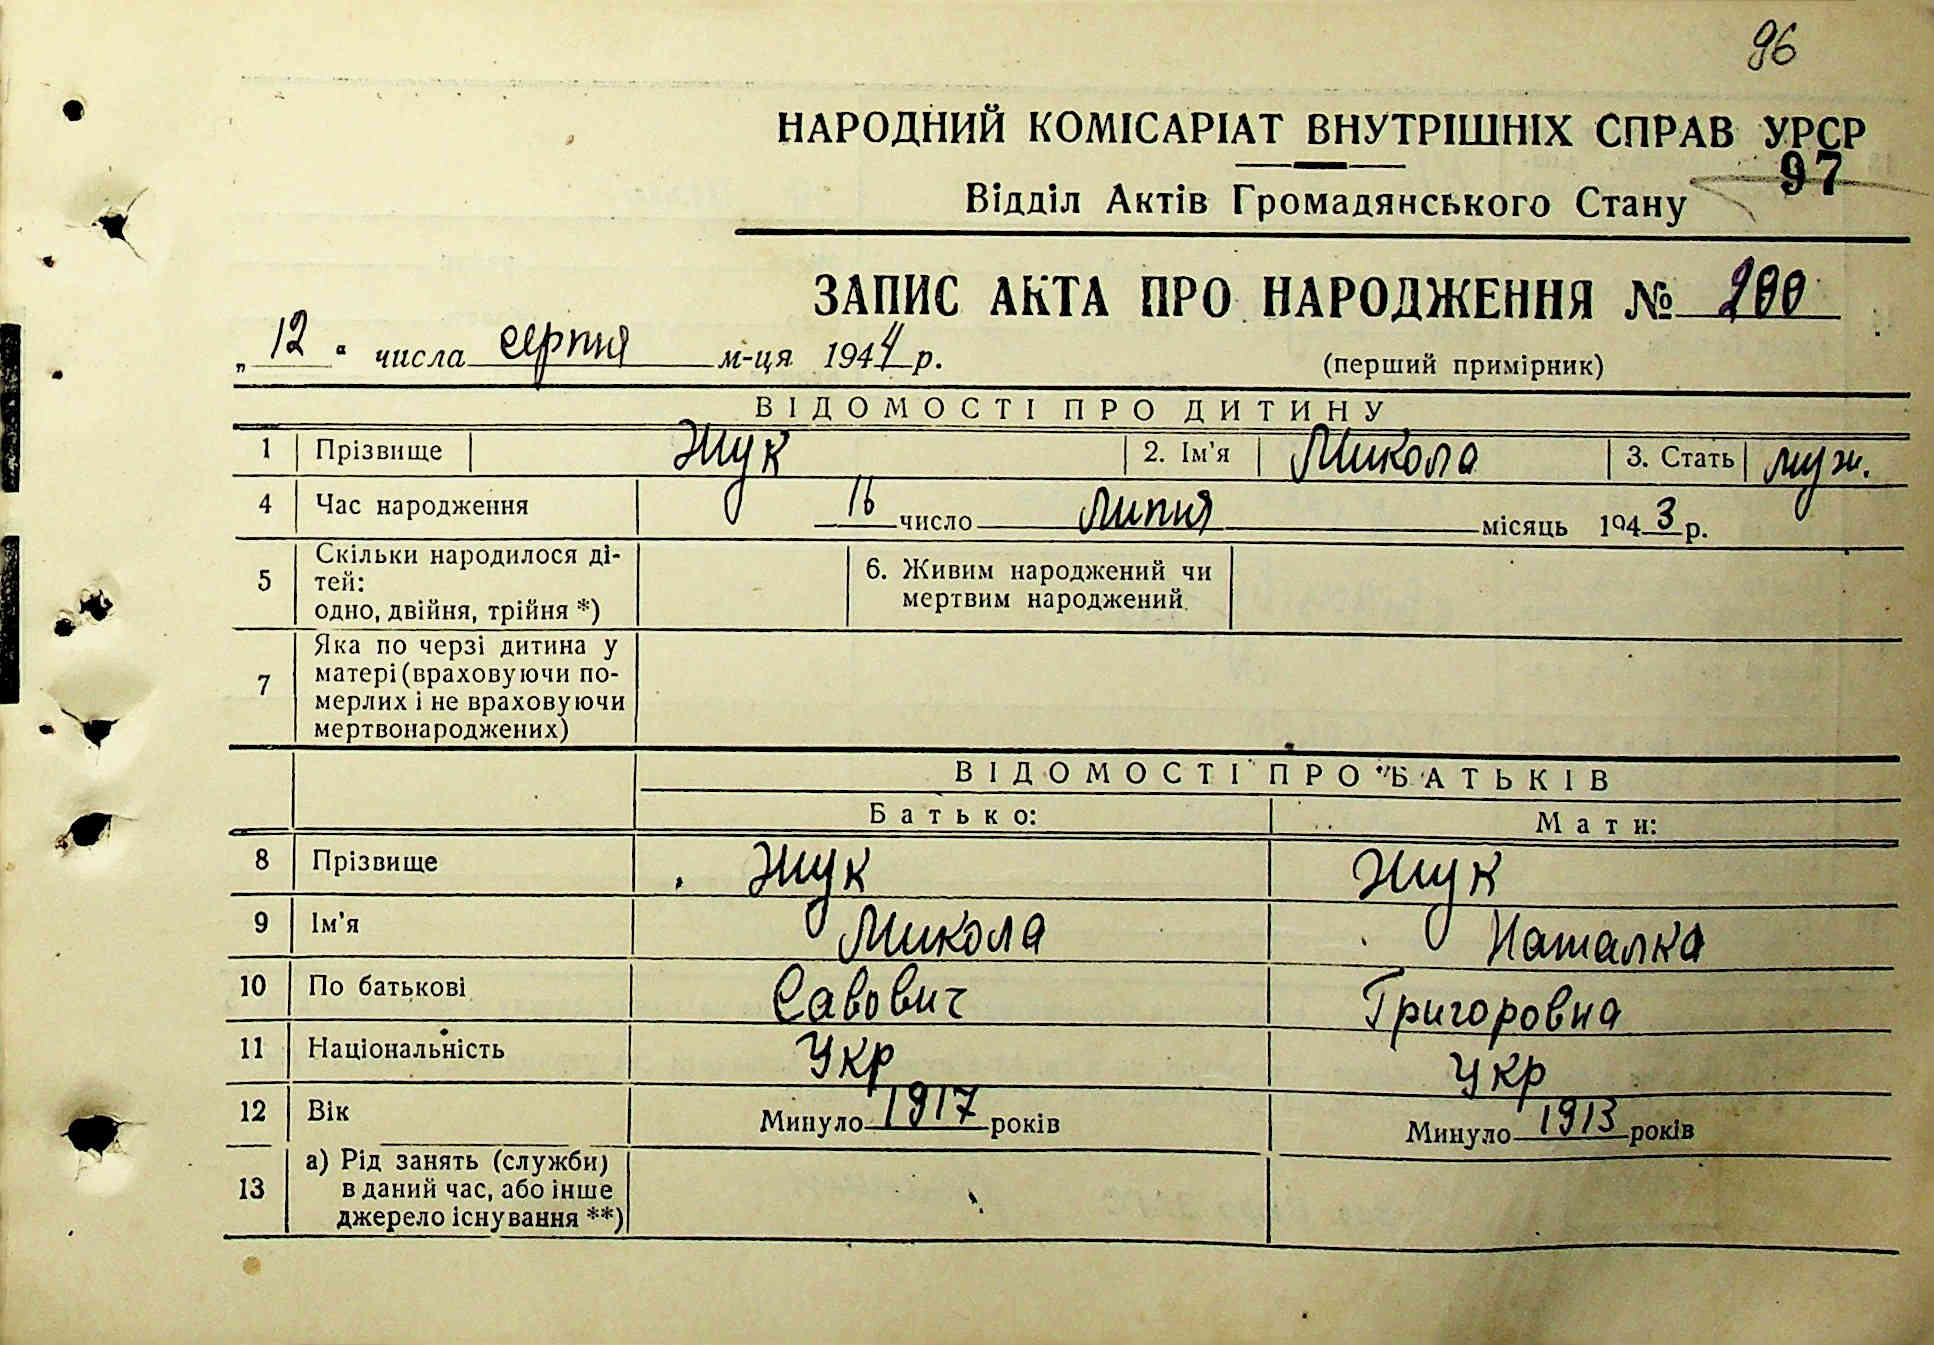 96
НАРОДНИЙ КОМІСАРІАТ ВНУТРІШНІХ СПРАВ УРСР
97
Відділ Актів Громадянського Стану
ЗАПИС АКТА ПРО НАРОДЖЕННЯ № 200
„12“ числа серпня м-ця 1944 р.
(перший примірник)
ВІДОМОСТІ ПРО ДИТИНУ
1 Прізвище Жук 2. Ім'я Микола 3. Стать муж.
4 Час народження 16 число липня місяць 1943 р.
5 Скільки народилося ді-
тей:
одно, двійня, трійня *)
6. Живим народжений чи
мертвим народжений
7 Яка по черзі дитина у
матері (враховуючи по-
мерлих і не враховуючи
мертвонароджених)
ВІДОМОСТІ ПРО БАТЬКІВ
Батько: Мати:
8 Прізвище Жук Жук
9 Ім'я Микола Наталка
10 По батькові Савович Григоровна
11 Національність Укр Укр
12 Вік Минуло 1917 років Минуло 1913 років
13 а) Рід занять (служби)
в даний час, або інше
джерело існування **)